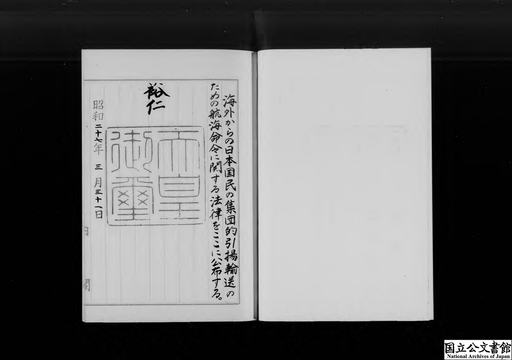 海外からの日本国民の集団的引揚輸送の
ための航海命令に関する法律をここに公布する。
裕仁
天皇
御璽
昭和二十七年三月三十一日
国立公文書館
National Archives of Japan